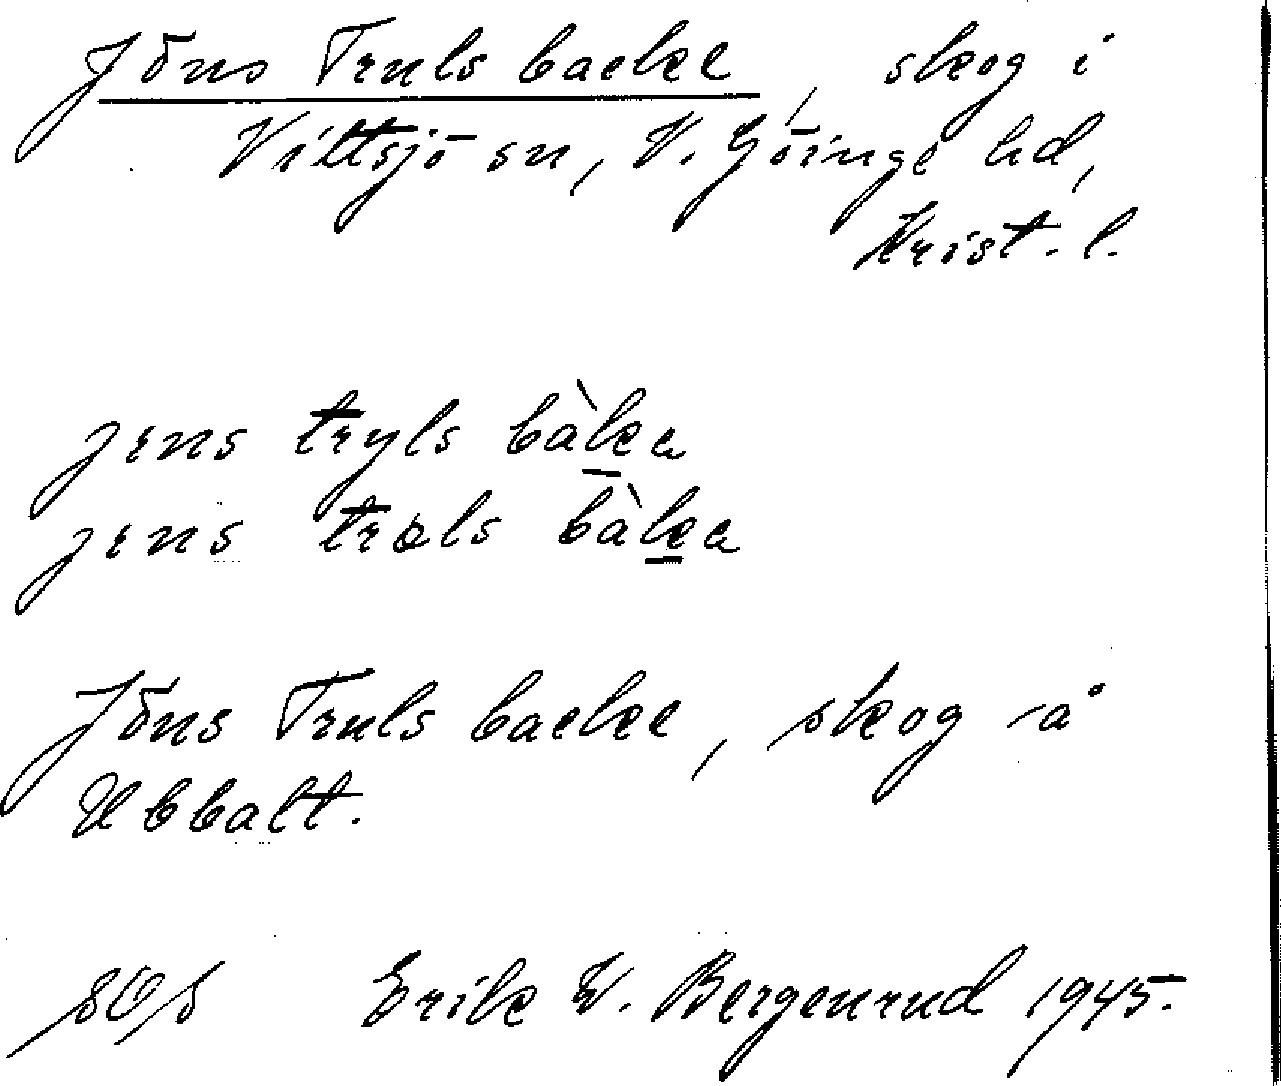 Jöns Truls backe, skog i
Vittsjö sn, V. Göinge hd,
Krist. l.
jens tryls bàka
jens trols bàka
Jöns Truls backe, skog å
Ubbalt.
Erik W. Bergenrud 1945.